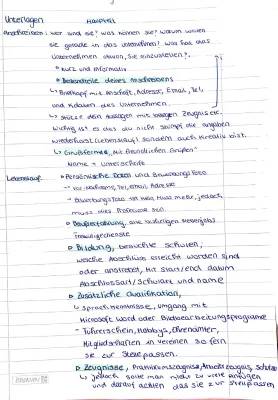 Unterlagen Haupttei
Anschreiben: wer sind sie? was können sie? warum wollen
sie gerade in das Unternehmen? was hat das
Unternehmen davon, sie einzustellen?
kurz und informativ
Bestandteile deines Anschreibens
Briefkopf mit Anschrift, Adresse, Email, Tel,
und Adaten des Unternehmens.
stütze dein Aussagen mit Zeugnis etc.
wichtig ist es das du nicht stumpf die Angaben
wiederholst (Lebenslauf) sondern auch kreativ bist.
Grußformel, mit freundlichen Grüßen
Name + Unterschrift
Lebenslauf: Persönliche Daten und Bewerbungsfoto
Vor-, Nachname, Tel, email, Adresse
Bewerbungsfoto ist kein Muss mehr, jedoch,
muss dies Professionell sein.
Berufserfahrung, alle bisherigen Nebenjobs
Bildung, besuchte Schulen,
welche Abschlüsse erreicht worden sind
oder anstrebst, Mit start/end datum
Abschlussart/Schulart und name
Zusätzliche Qualifikation,
Sprachkenntnisse, umgang mit
Microsoft word oder Bildbearbeitungsprogramme
- Führerschein, Hobbys, Ehrenämter,
Mitgliedschaften in Vereinen sofern
sie zur Stelle passen.
Zeugnisse, Praktikumszeugnisse, Arbeitszeugnis, Schulze
jedoch sollte man nicht zu viele anfügen
und darauf achten das sie zur Stelle passen